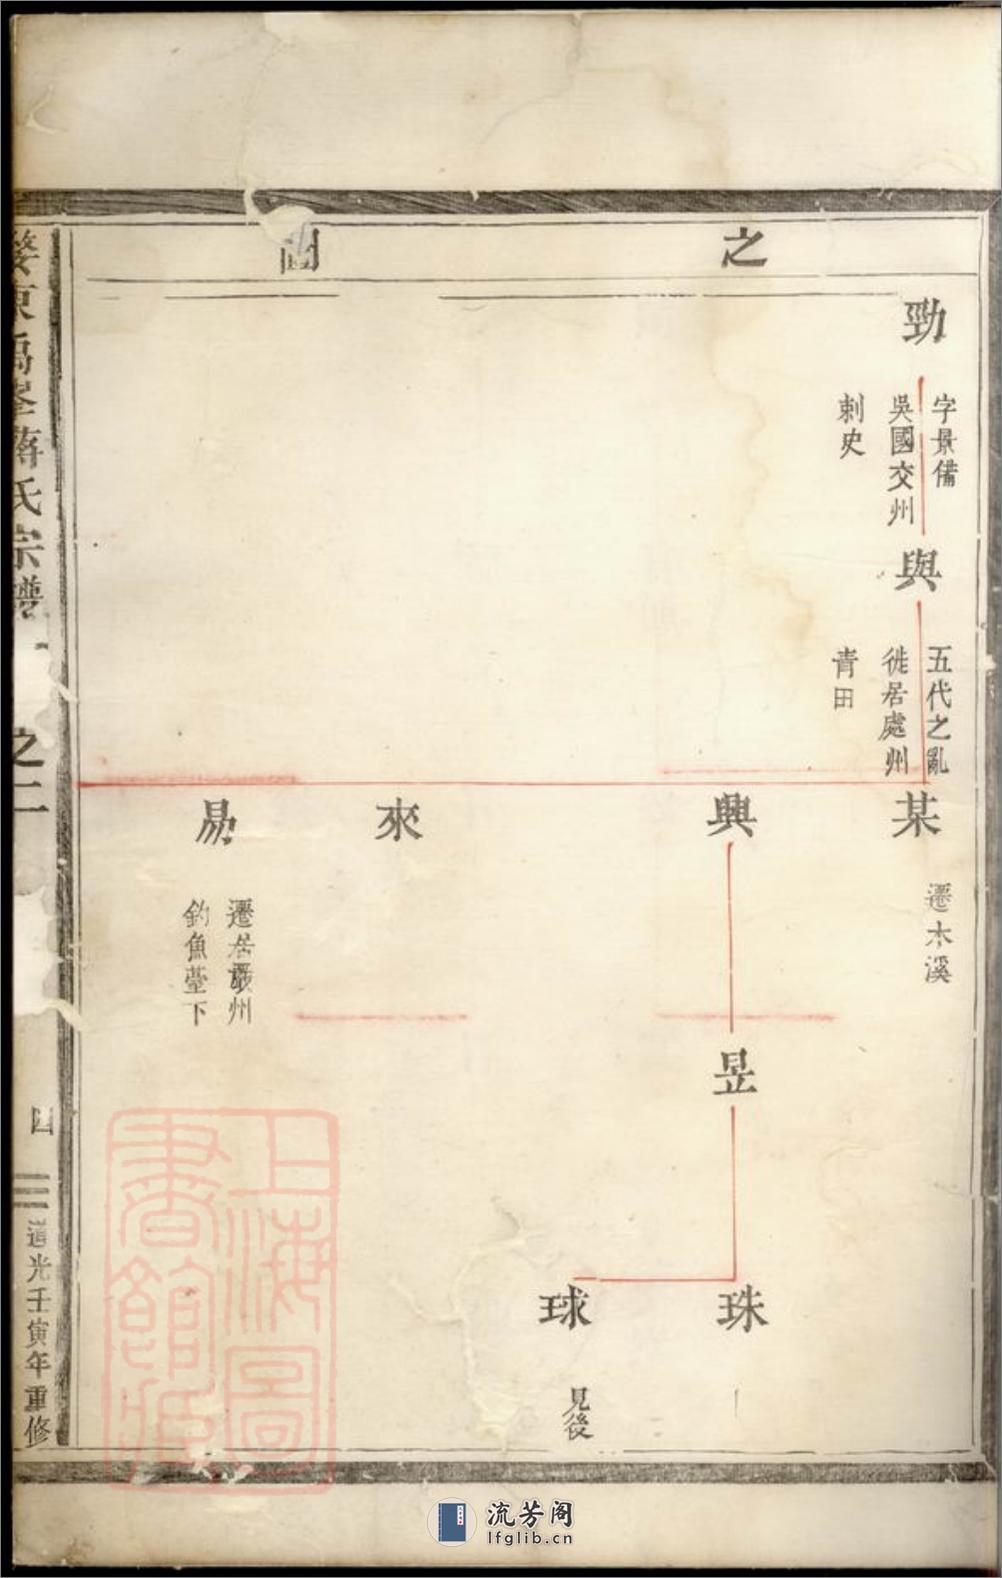 之圖
勁
字景備
吳國交州
刺史
與
五代之亂
徙居處州
青田
某
遷木溪
興
來
易
遷居嚴州
釣魚臺下
昱
珠
球
見後
婺東禹峯蔣氏宗譜
之二
四
道光壬寅年重修
上海圖書館藏
流芳阁
lfglib.cn